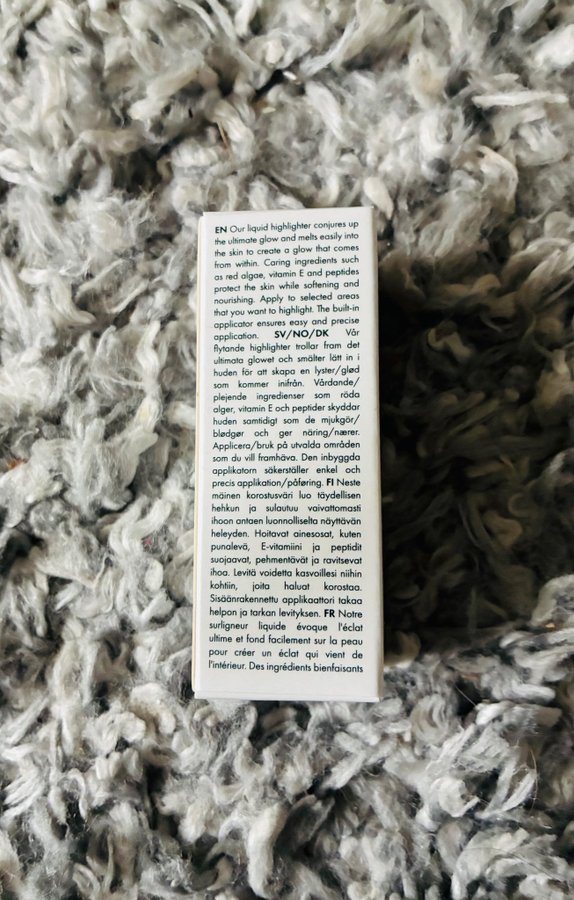 EN Our liquid highlighter conjures up
the ultimate glow and melts easily into
the skin to create a glow that comes
from within. Caring ingredients such
as red algae, vitamin E and peptides
protect the skin while softening and
nourishing. Apply to selected areas
that you want to highlight. The built-in
applicator ensures easy and precise
application. SV/NO/DK Vår
flytande highlighter trollar fram det
ultimata glowet och smälter lätt in i
huden för att skapa en lyster/glød
som kommer inifrån. Vårdande/
plejende ingredienser som röda
alger, vitamin E och peptider skyddar
huden samtidigt som de mjukgör/
blødgør och ger näring/nærer.
Applicera/bruk på utvalda områden
som du vill framhäva. Den inbyggda
applikatorn säkerställer enkel och
precis applikation/påføring. FI Neste
mäinen korostusväri luo täydellisen
hehkun ja sulautuu vaivattomasti
ihoon antaen luonnolliselta näyttävän
heleyden. Hoitavat ainesosat, kuten
punalevä, E-vitamiini ja peptidit
suojaavat, pehmentävät ja ravitsevat
ihoa. Levitä voidetta kasvoillesi niihin
kohtiin, joita haluat korostaa.
Sisäänrakennettu applikaattori takaa
helpon ja tarkan levityksen. FR Notre
surligneur liquide évoque l'éclat
ultime et fond facilement sur la peau
pour créer un éclat qui vient de
l'intérieur. Des ingrédients bienfaisants